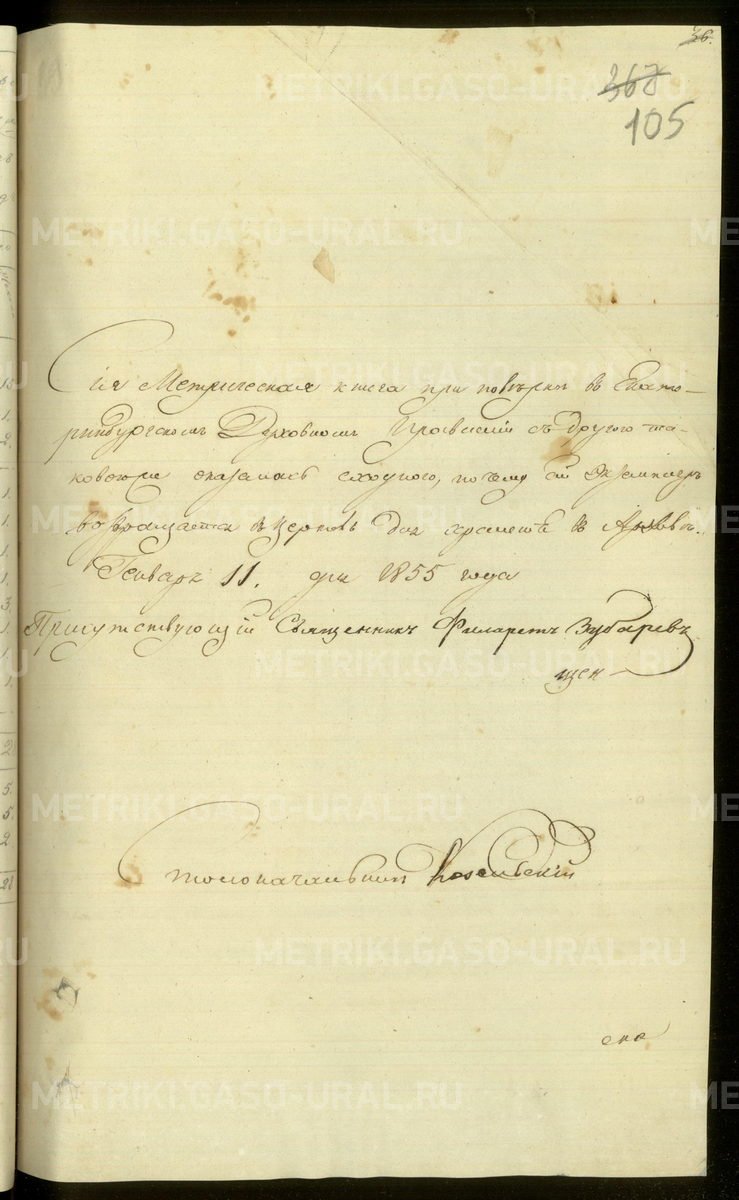 36.
368
105
Сія Метрическая книга при повѣркѣ въ Екате-
ринбургскомъ Духовномъ Правленіи съ другого та-
ковою же оказалась сходною, почему сей Экземпляръ
возвращается въ церковь для храненія въ Архивѣ.
Генваря 11. дня 1855 года
Присутствующій Священникъ Филаретъ Зубаревъ
Столоначальникъ Козельскій
METRIKI.GASO-URAL.RU